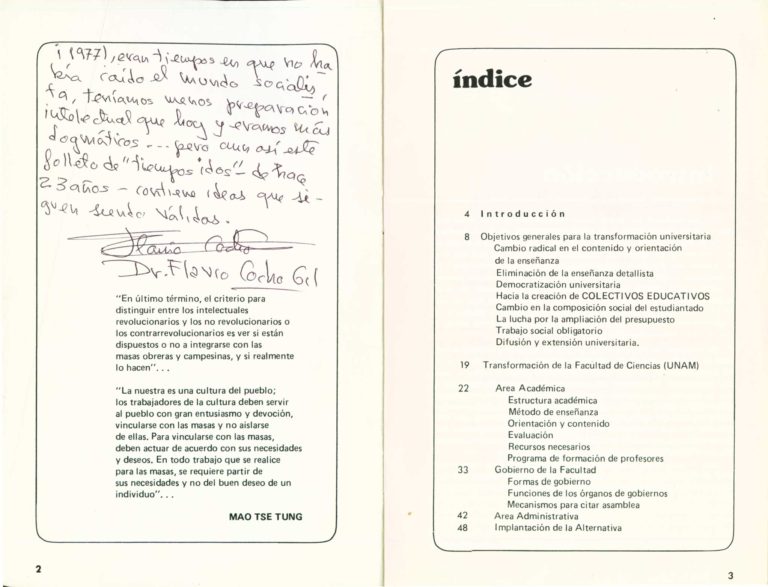 ¡(1977), eran tiempos en que no ha
bía caído el mundo socialis,
ta, teníamos menos preparación
intelectual que hoy y eramos más
dogmáticos... pero aun así este
folleto de "tiempos idos" – de hace
23 años – contiene ideas que si-
guen siendo válidas.
Flavio Cocho
Dr. Flavio Cocho Gil
"En último término, el criterio para
distinguir entre los intelectuales
revolucionarios y los no revolucionarios o
los contrarrevolucionarios es ver si están
dispuestos o no a integrarse con las
masas obreras y campesinas, y si realmente
lo hacen"...
"La nuestra es una cultura del pueblo;
los trabajadores de la cultura deben servir
al pueblo con gran entusiasmo y devoción,
vincularse con las masas y no aislarse
de ellas. Para vincularse con las masas,
deben actuar de acuerdo con sus necesidades
y deseos. En todo trabajo que se realice
para las masas, se requiere partir de
sus necesidades y no del buen deseo de un
individuo"...
MAO TSE TUNG
2
índice
4 Introducción
8 Objetivos generales para la transformación universitaria
Cambio radical en el contenido y orientación
de la enseñanza
Eliminación de la enseñanza detallista
Democratización universitaria
Hacia la creación de COLECTIVOS EDUCATIVOS
Cambio en la composición social del estudiantado
La lucha por la ampliación del presupuesto
Trabajo social obligatorio
Difusión y extensión universitaria.
19 Transformación de la Facultad de Ciencias (UNAM)
22 Area Académica
Estructura académica
Método de enseñanza
Orientación y contenido
Evaluación
Recursos necesarios
Programa de formación de profesores
33 Gobierno de la Facultad
Formas de gobierno
Funciones de los órganos de gobiernos
Mecanismos para citar asamblea
42 Area Administrativa
48 Implantación de la Alternativa
3